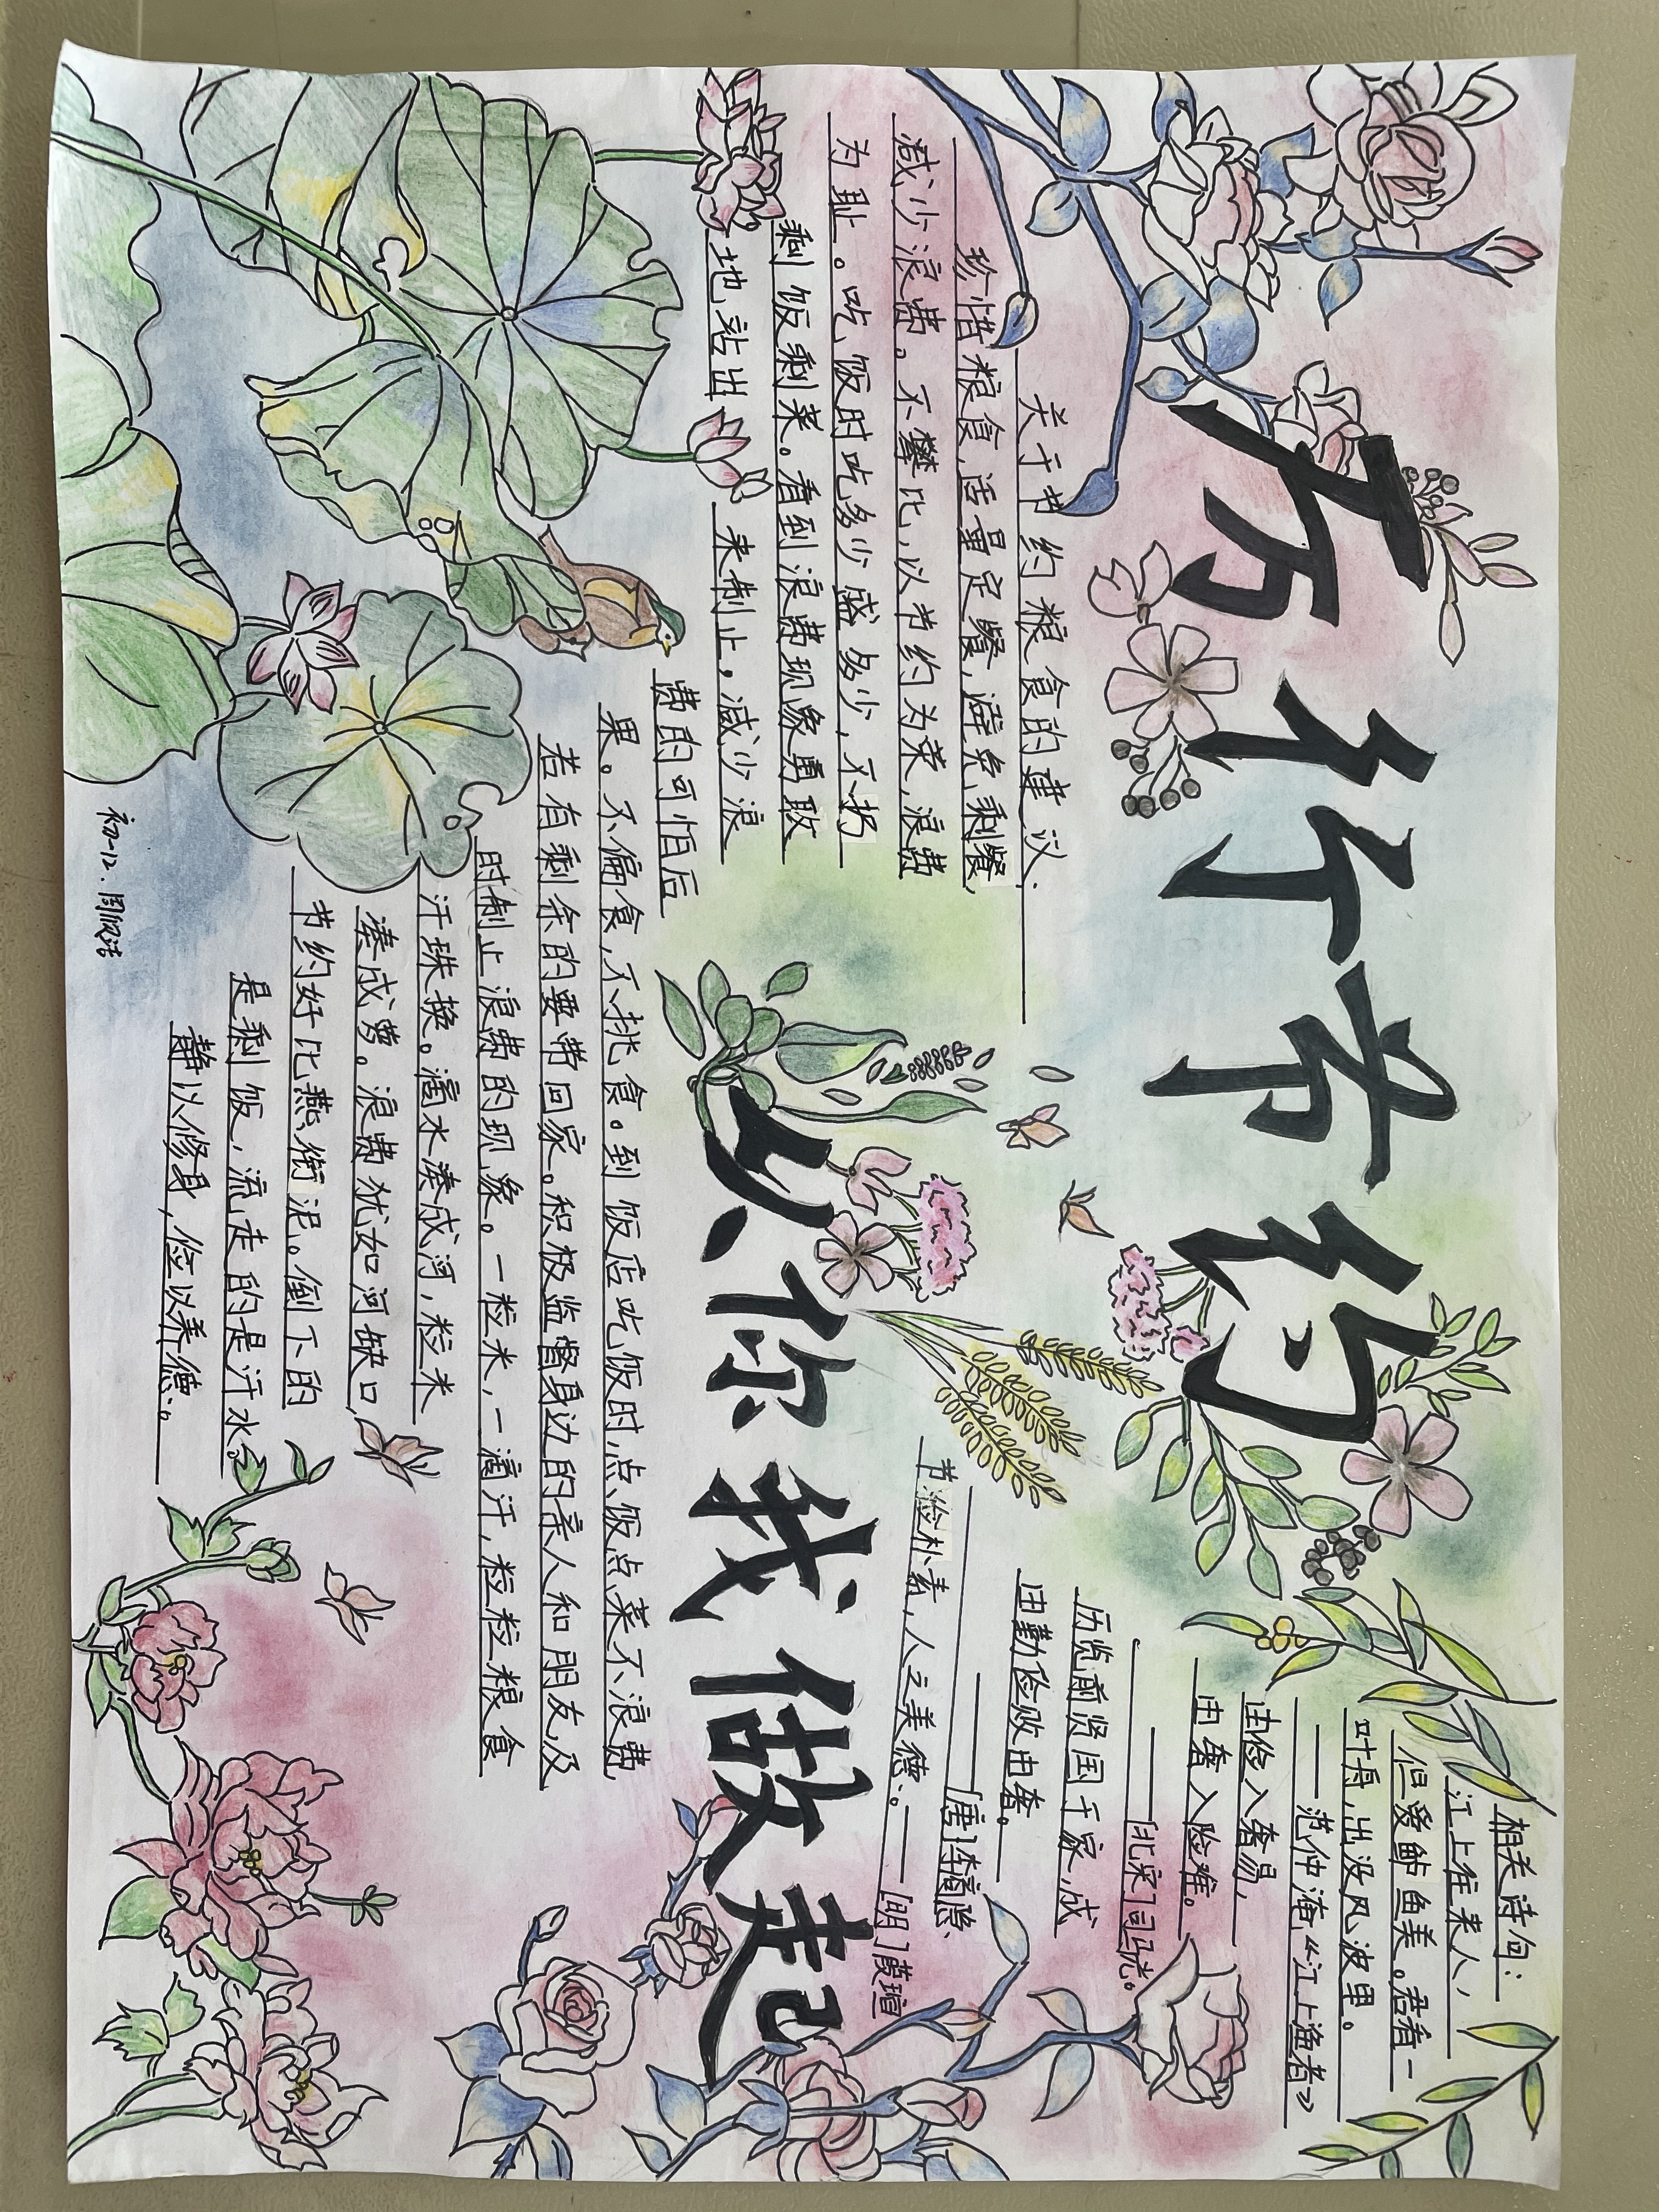 厉行节约
从你我做起
关于节约粮食的建议:
珍惜粮食,适量定餐,避免剩餐,
减少浪费。不攀比,以节约为荣,浪费
为耻。吃饭时吃多少盛多少,不扔
剩饭剩菜。看到浪费现象勇敢
地站出来制止。减少浪
费的可怕后
果。不偏食,不挑食。到饭店吃饭时,点饭点菜不浪费
若有剩余的要带回家。积极监督身边的亲人和朋友,及
时制止浪费的现象。一粒米,一滴汗,粒粒粮食
汗珠换。滴水凑成河,粒米
凑成箩。浪费犹如河缺口,
节约好比燕衔泥。倒下的
是剩饭,流走的是汗水。
静以修身,俭以养德。
相关诗句:
江上往来人,
但爱鲈鱼美。君看一
叶舟,出没风波里。
——范仲淹《江上渔者》
由俭入奢易,
由奢入险难。
——[北宋]司马光。
历览前贤国于家,成
由勤俭败由奢。
——[唐]李商隐、
节俭朴素,人之美德。——[明]薛瑄
初一12.周